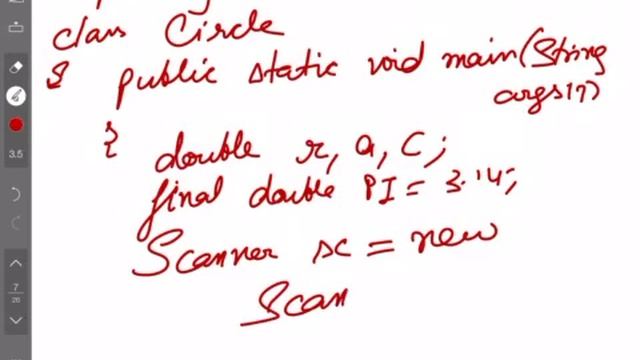 class Circle
{ public static void main(String
args[])
{ double r, a, c;
final double PI = 3.14;
Scanner sc = new
Scan
3.5
7
26